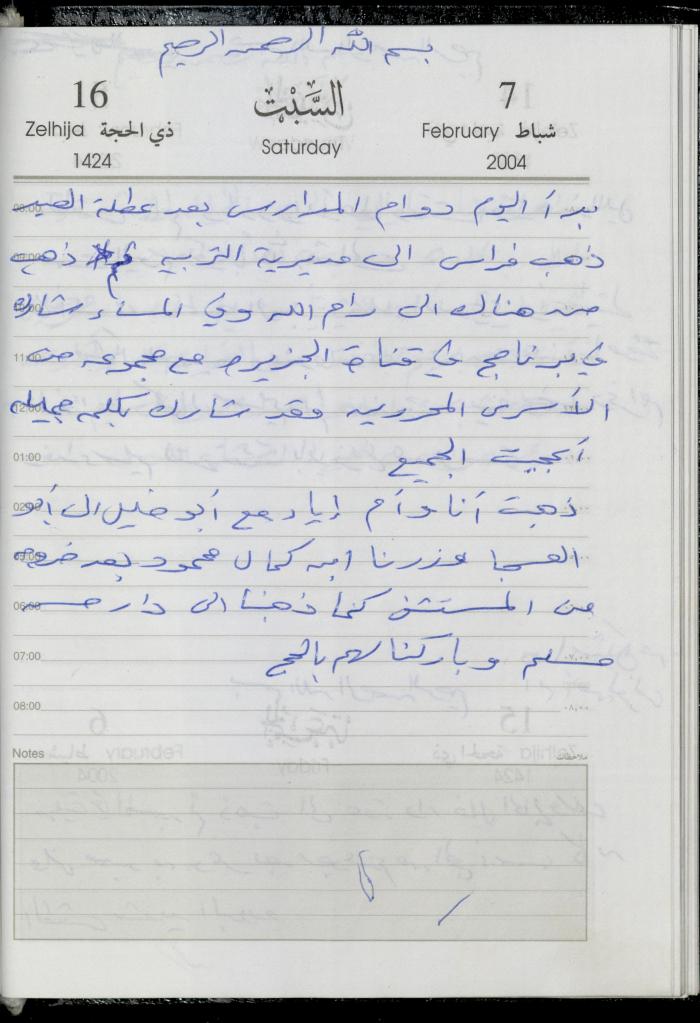 بسم الله الرحمن الرحيم
16 السَّبْت 7
Zelhija ذي الحجة Saturday February شباط
1424 2004
بدأ اليوم دوام المدارس بعد عطلة العيد
08:00
ذهب فراس الى مديرية التربيه ثم ذهب
من هناك الى رام الله وفي المساء شارك
في برنامج في قناة الجزيره مع مجموعه من
11:00
الأسرى المحررين فقد شارك بكلمه جميله
12:00
أعجبت الجميع
01:00
ذهبت أنا وأم إياد مع أبو خليل الى أبو
02:00
العسجا وزرنا ابن كمال محمود بعد خروجه
من المستشفى كما ذهبنا الى دار حسن
06:00
مسلم وباركنا لهم بالحج
07:00
08:00 ٠٨,٠٠
Notes ملاحظات